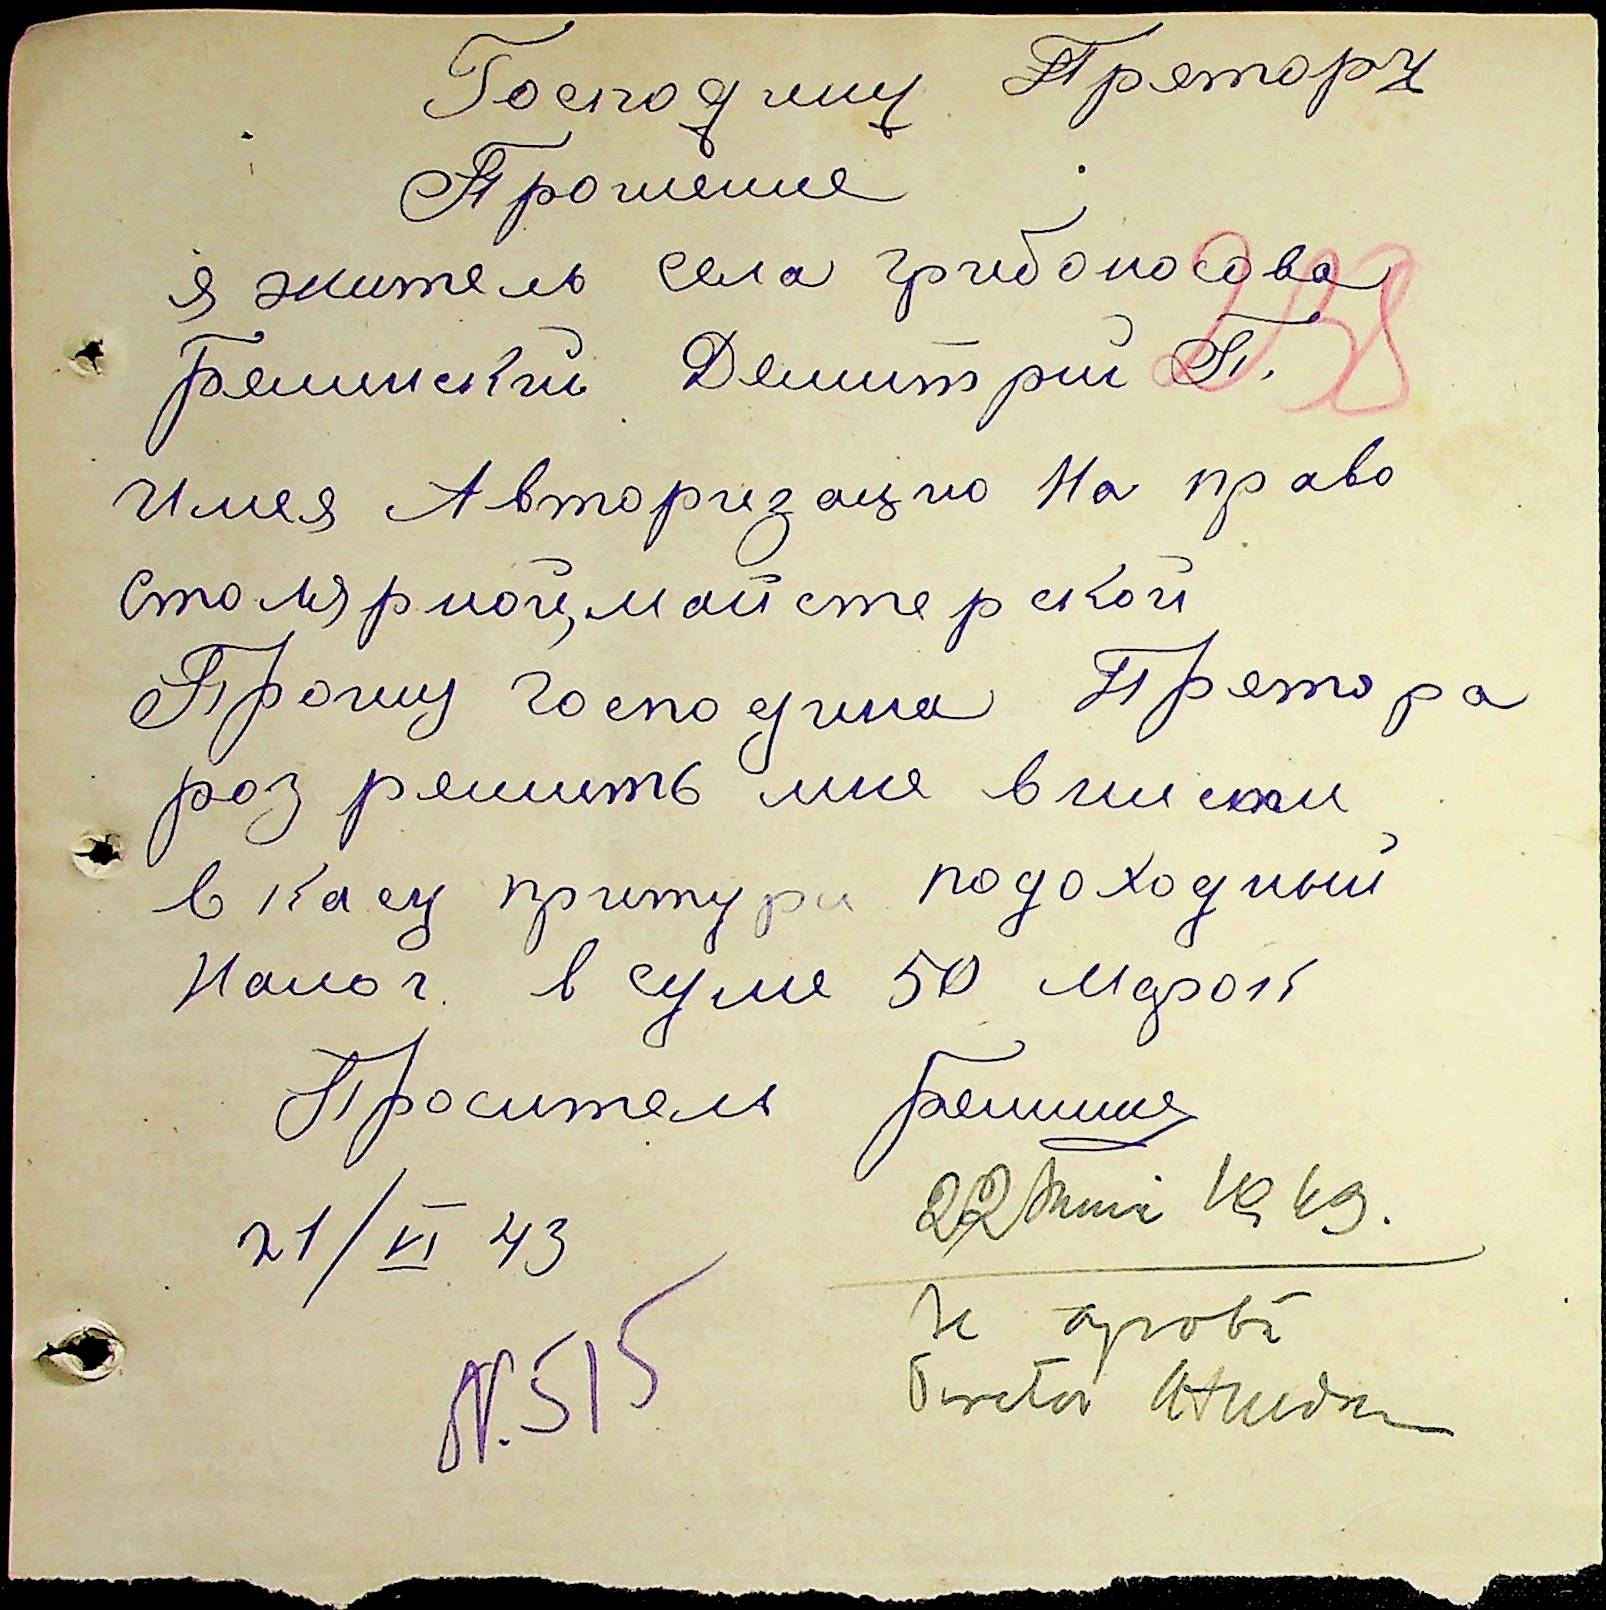 Господину Претору
Прошение
я житель села грибоносова
238
Белинский Демитрий П.
имея Авторизацию На право
столярной, майстерской
Прошу господина Претора
роз решить мне внисти
в касу притури подоходный
Налог в суме 50 марок
Проситель
21/VI 43
22 1943.
Se aprobă
Pretor
N. 515